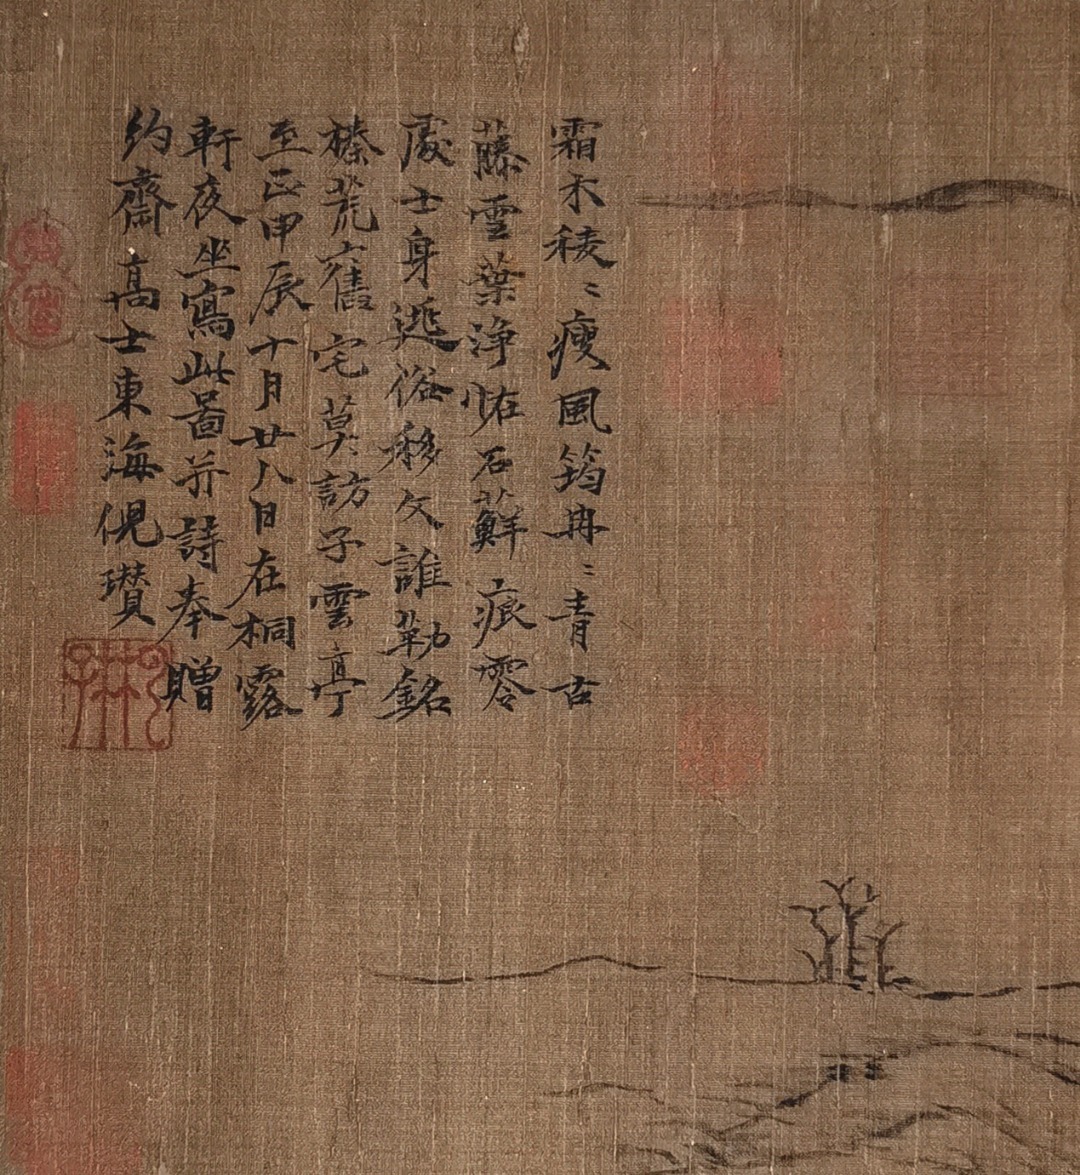 霜木稜〻瘦風筠冉〻青古
藤雪葉淨怪石蘚痕零
處士身逃俗移文誰勒銘
榛荒舊宅莫訪子雲亭
至正甲辰十月廿八日在桐露
軒夜坐寫此圖并詩奉贈
約齋高士東海倪瓚